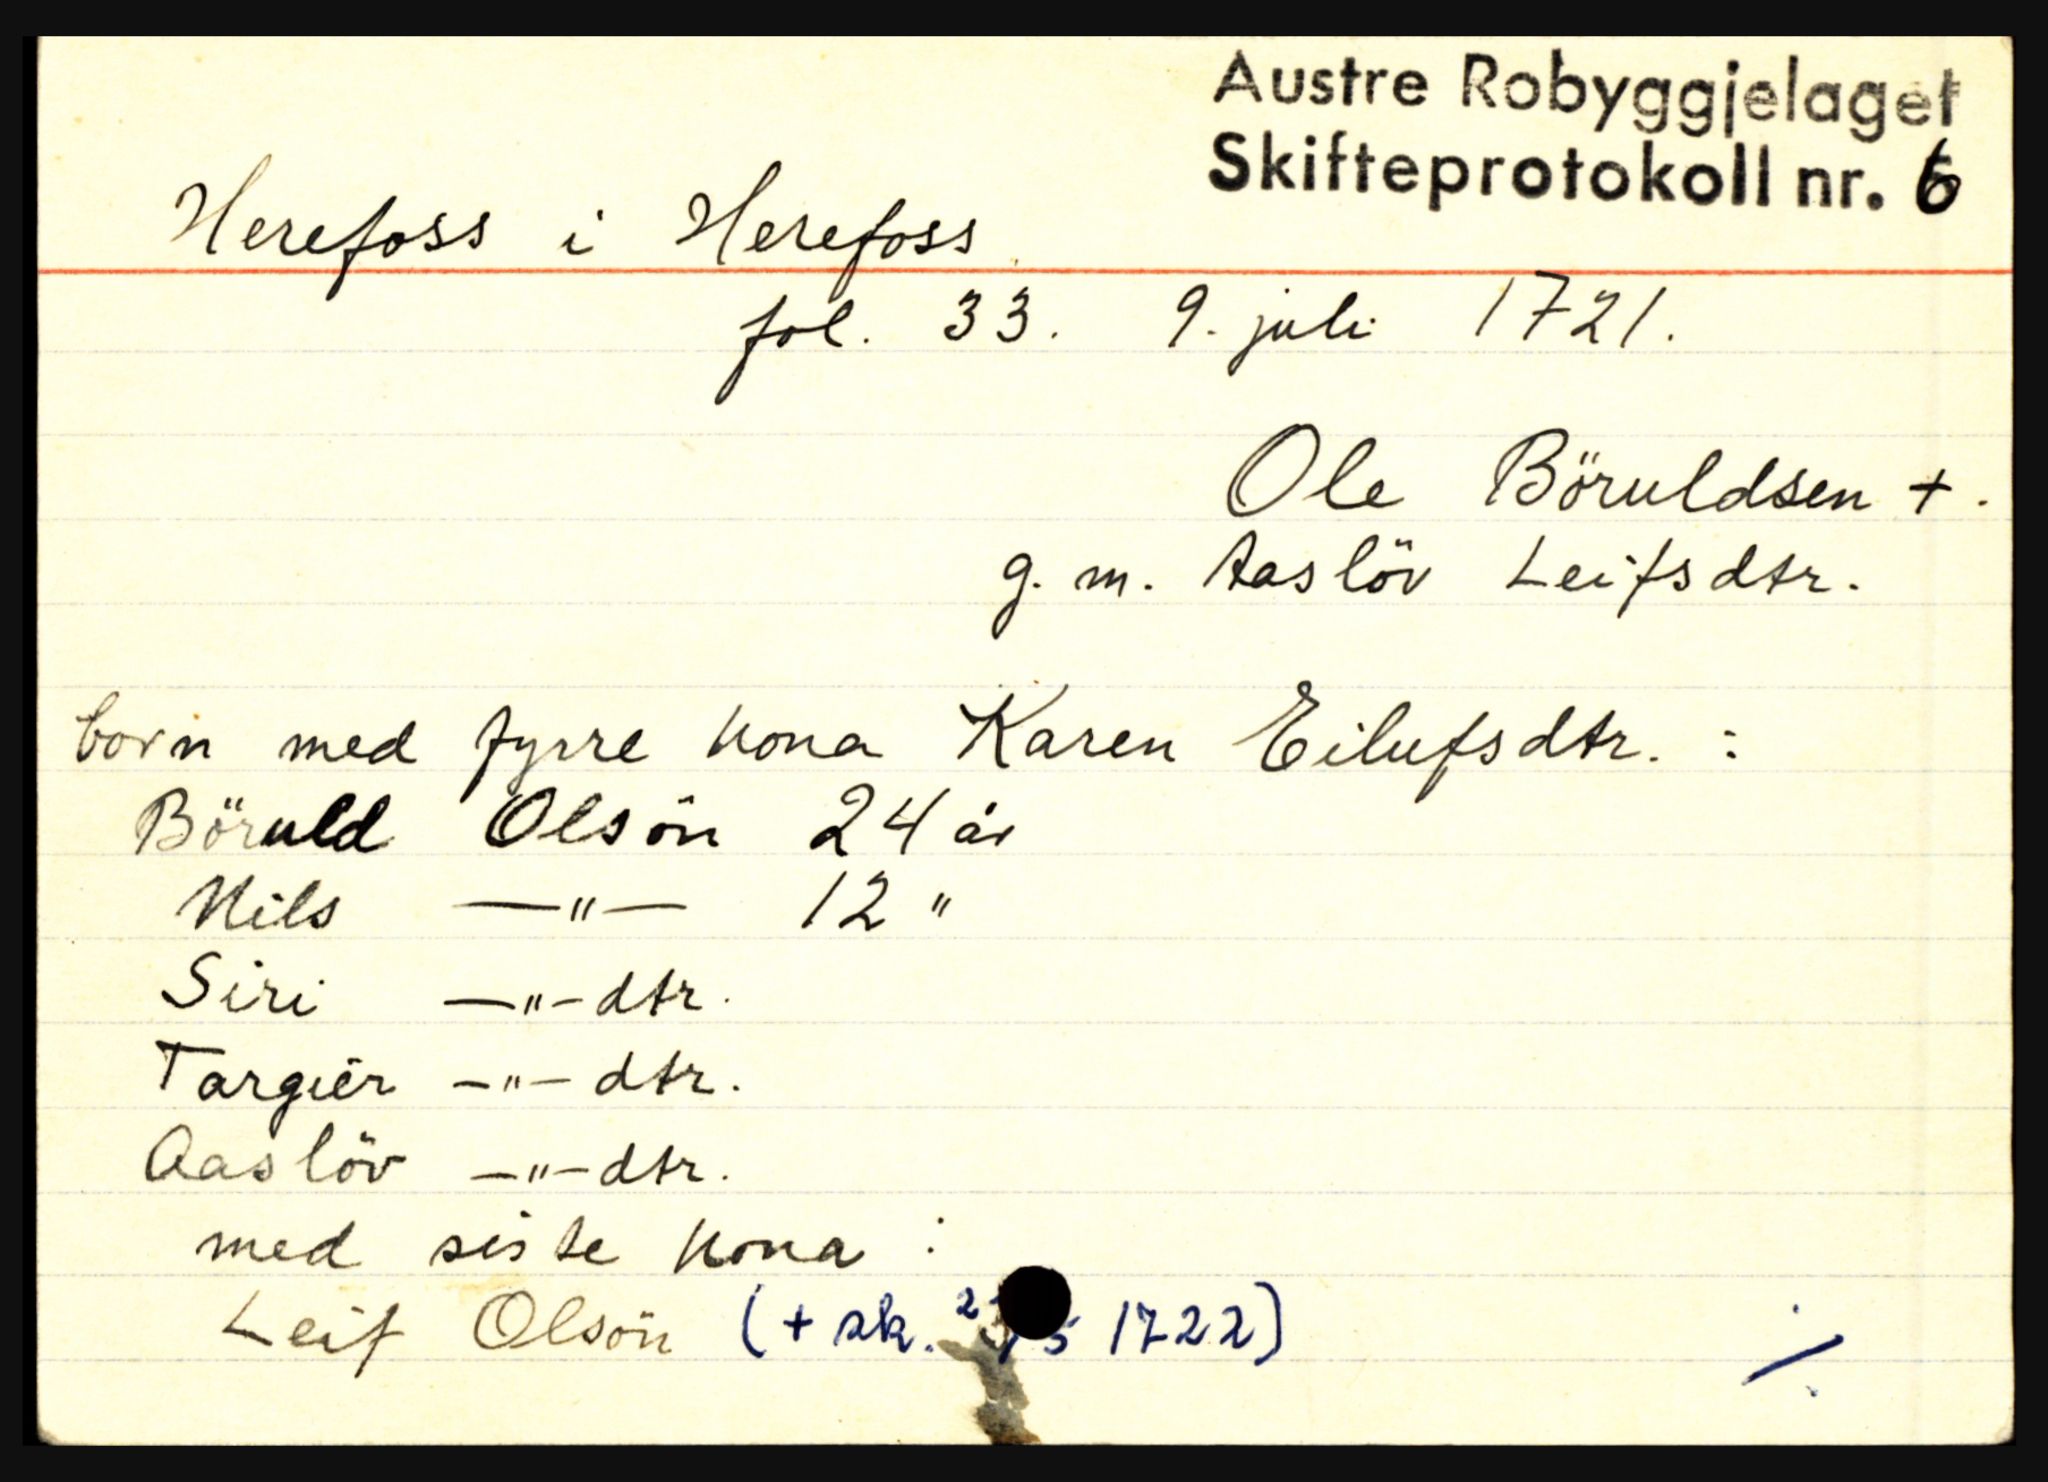 Austre Robyggjelaget
Skifteprotokoll nr. 6
Herefoss i Herefoss
fol. 33. 9. juli 1721.
Ole Böruldsen +.
g. m. Aaslöv Leifsdtr.
born med fyrre kona Karen Eilufsdtr. :
Böruld Olsön 24 år
Nils —"— 12 "
Siri —"— dtr.
Targier —"— dtr.
Aaslöv —"— dtr.
med siste kona :
Leif Olsön (+ sk. 1722)